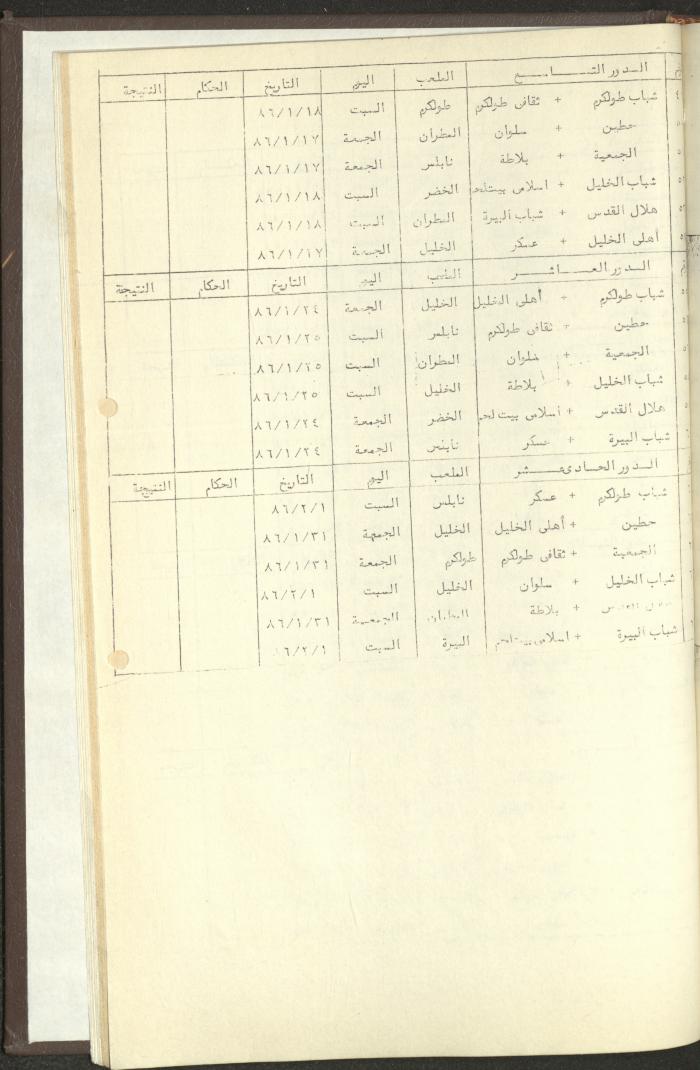 الدور التاسع الملعب اليوم التاريخ الحكام النتيجة
شباب طولكرم + ثقافي طولكرم طولكرم السبت ٨٦/١/١٨
حطين + سلوان المطران الجمعة ٨٦/١/١٧
الجمعية + بلاطة نابلس الجمعة ٨٦/١/١٧
شباب الخليل + اسلامي بيت لحم الخضر السبت ٨٦/١/١٨
هلال القدس + شباب البيرة المطران السبت ٨٦/١/١٨
أهلي الخليل + عسكر الخليل الجمعة ٨٦/١/١٧
الدور العاشر الملعب اليوم التاريخ الحكام النتيجة
شباب طولكرم + أهلي الخليل الخليل الجمعة ٨٦/١/٢٤
حطين + ثقافي طولكرم نابلس السبت ٨٦/١/٢٥
الجمعية + سلوان المطران السبت ٨٦/١/٢٥
شباب الخليل + بلاطة الخليل السبت ٨٦/١/٢٥
هلال القدس + اسلامي بيت لحم الخضر الجمعة ٨٦/١/٢٤
شباب البيرة + عسكر نابلس الجمعة ٨٦/١/٢٤
الدور الحادي عشر الملعب اليوم التاريخ الحكام النتيجة
شباب طولكرم + عسكر نابلس السبت ٨٦/٢/١
حطين + أهلي الخليل الخليل الجمعة ٨٦/١/٣١
الجمعية + ثقافي طولكرم طولكرم الجمعة ٨٦/١/٣١
شباب الخليل + سلوان الخليل السبت ٨٦/٢/١
هلال القدس + بلاطة المطران الجمعة ٨٦/١/٣١
شباب البيرة + اسلامي بيت لحم البيرة السبت ٨٦/٢/١